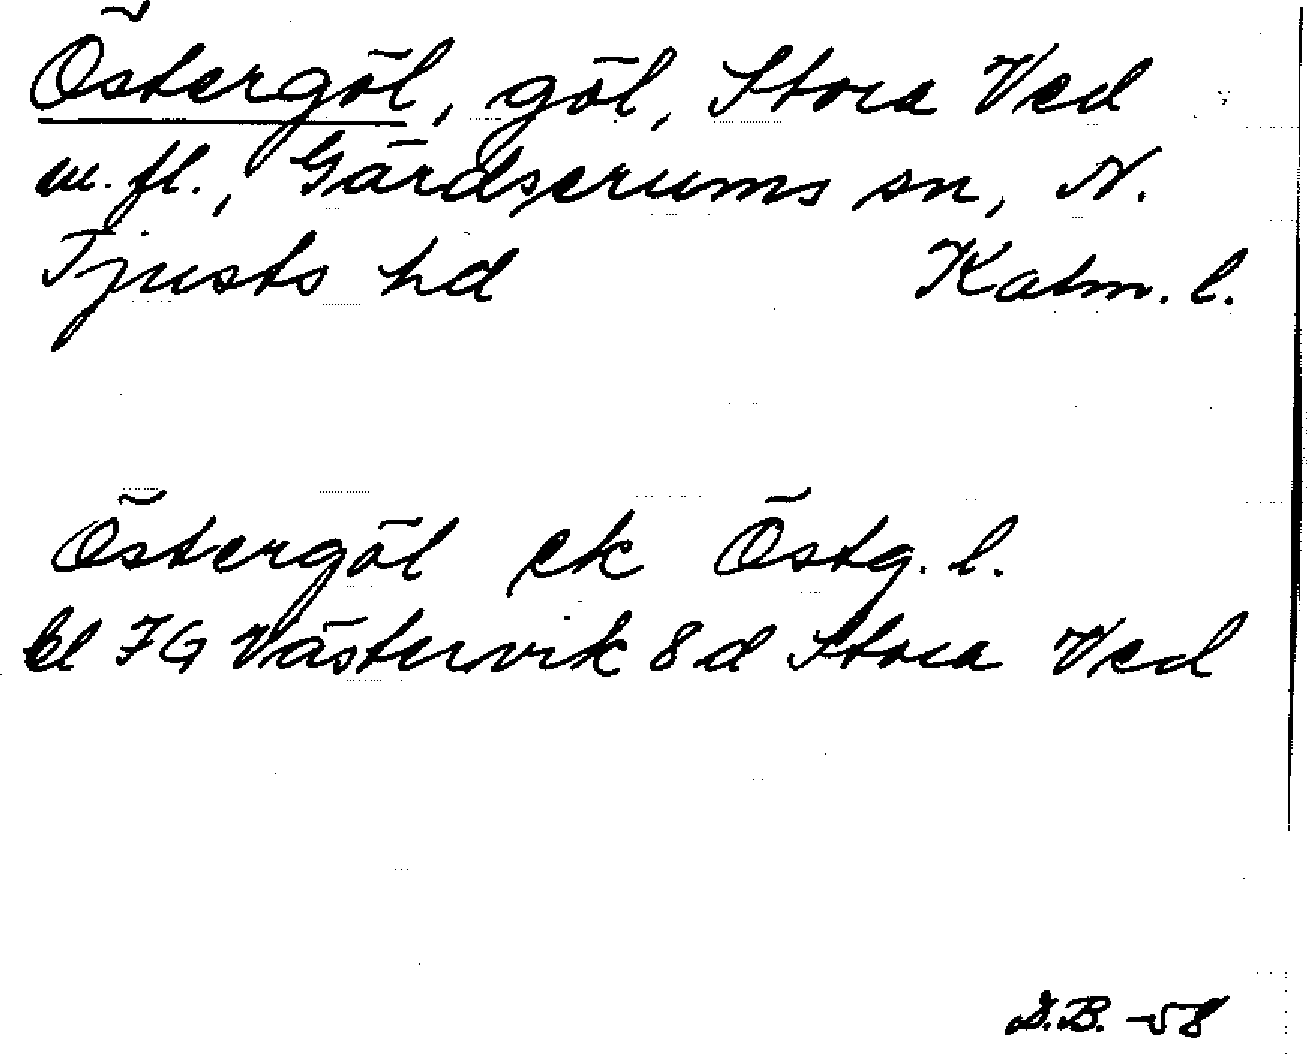 Östergöl, göl, Stora Ved
m.fl., Gärdserums sn, N.
Tjusts hd Kalm. l.
Östergöl ek Östg. l.
bl 7G Västervik 8d Stora Ved
D.B. -58